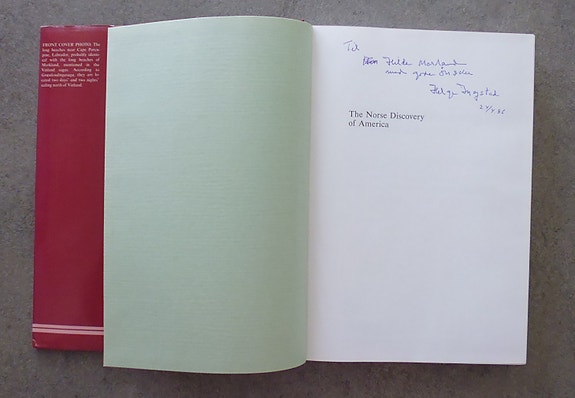 FRONT COVER PHOTO: The
long beaches near Cape Porcu-
pine, Labrador, probably identi-
cal with the long beaches of
Markland, mentioned in the
Vinland sagas. According to
they are lo-
cated two days' and two nights'
sailing north of Vinland.
Til
Hilde
med gode ønsker
Helge Ingstad
The Norse Discovery
of America